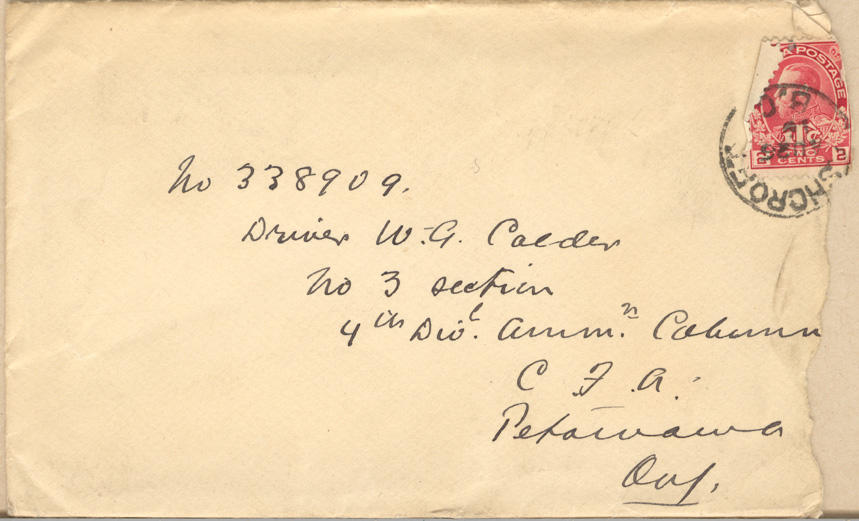 A POSTAGE
2 CENTS 2
B.C
No 338909.
Driver W. G. Calder
No 3 section
4th Divl. Ammn. Column
C F A.
Petawawa
Ont.